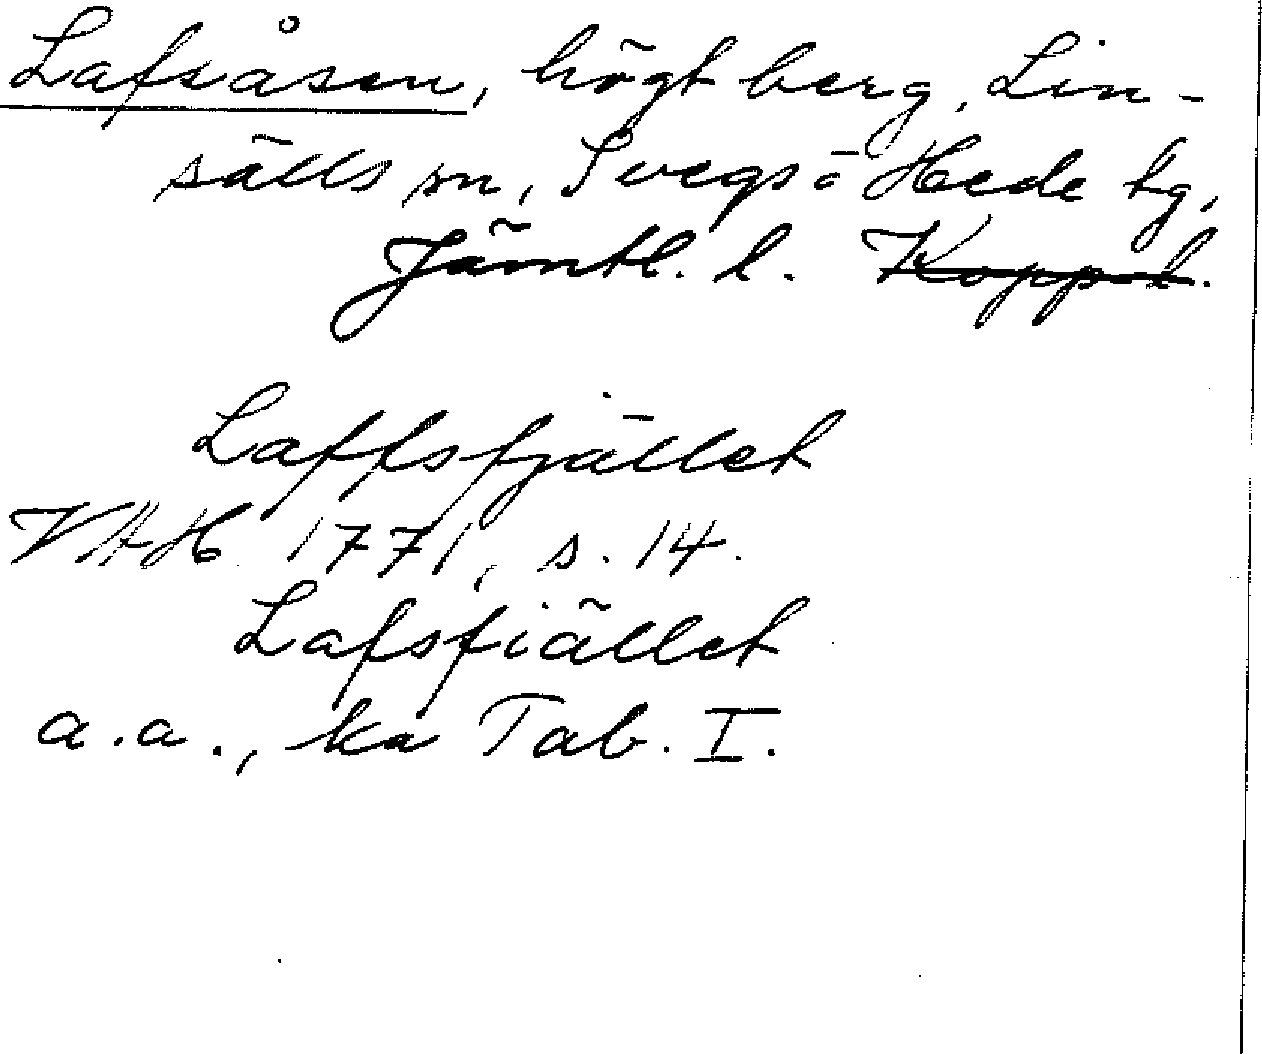 Lafsåsen, högt berg, Lin-
sälls sn, Svegs o Hede tg,
Jämtl. l. Koppl.
Laffsfjället
VAH 1771, s. 14.
Lafsfiället
a.a., ka Tab. I.